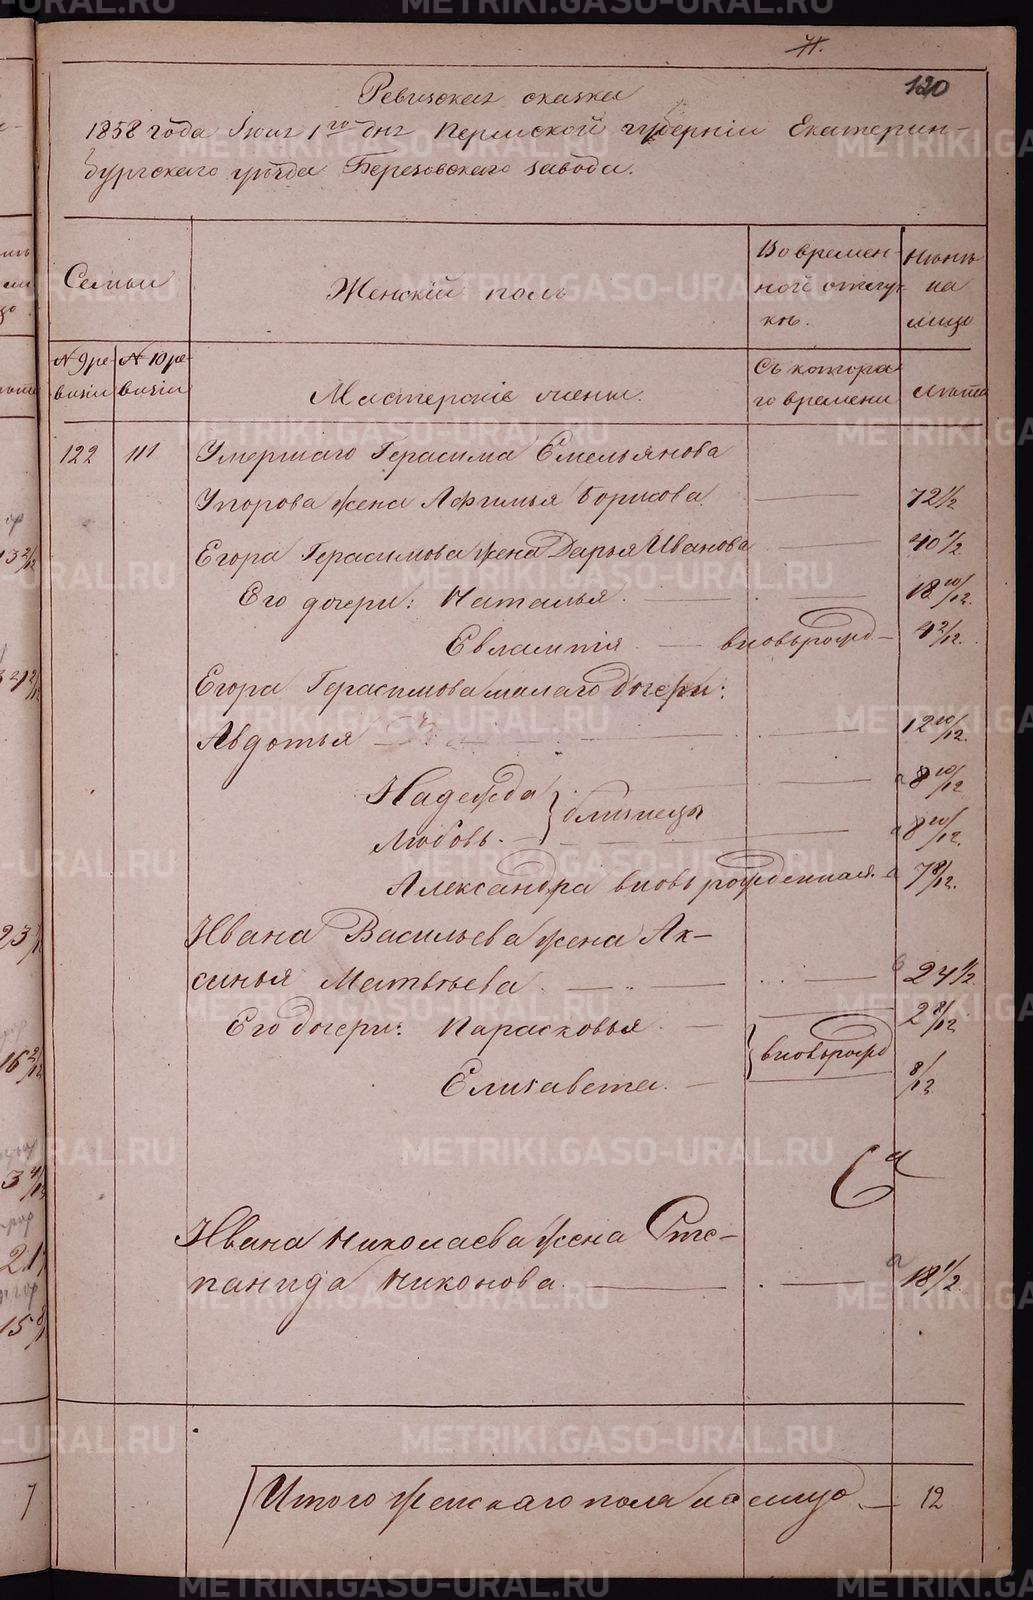 71.
120
Ревизская сказка
1858 года Iюня 1го дня Пермской губернiи Екатерин-
бургскаго уѣзда Березовскаго завода.
Семьи
Женскiй полъ
Во времен-
ной отлуч-
кѣ.
Нынѣ
на
лицо
№ 9 ре-
визiи
№ 10 ре-
визiи
Мастерскiе члены.
Съ котора
го времени
Лѣта
122 111 Умершаго Герасима Емельянова
Упорова жена Афимья Борисова 72 1/2
Егора Герасимова жена Дарья Иванова 40 1/2
Его дочери: Наталья 18 10/12.
Евлампiя вновьрожд— 4 2/12.
Егора Герасимова малаго дочери:
Авдотья 12 10/12.
Надежда } близнецы 8 10/12
Любовь 8 10/12.
Александра вновь рожденная. 7 8/12.
Ивана Васильева жена Ак-
синья Матвѣева 24 1/2
Его дочери: Парасковья } вновьрожд 2 8/12
Елизавета. 8/12
Ивана Николаева жена Сте-
панида Никонова 18 1/2
Итого женскаго пола на лицо 12
METRIKI.GASO-URAL.RU